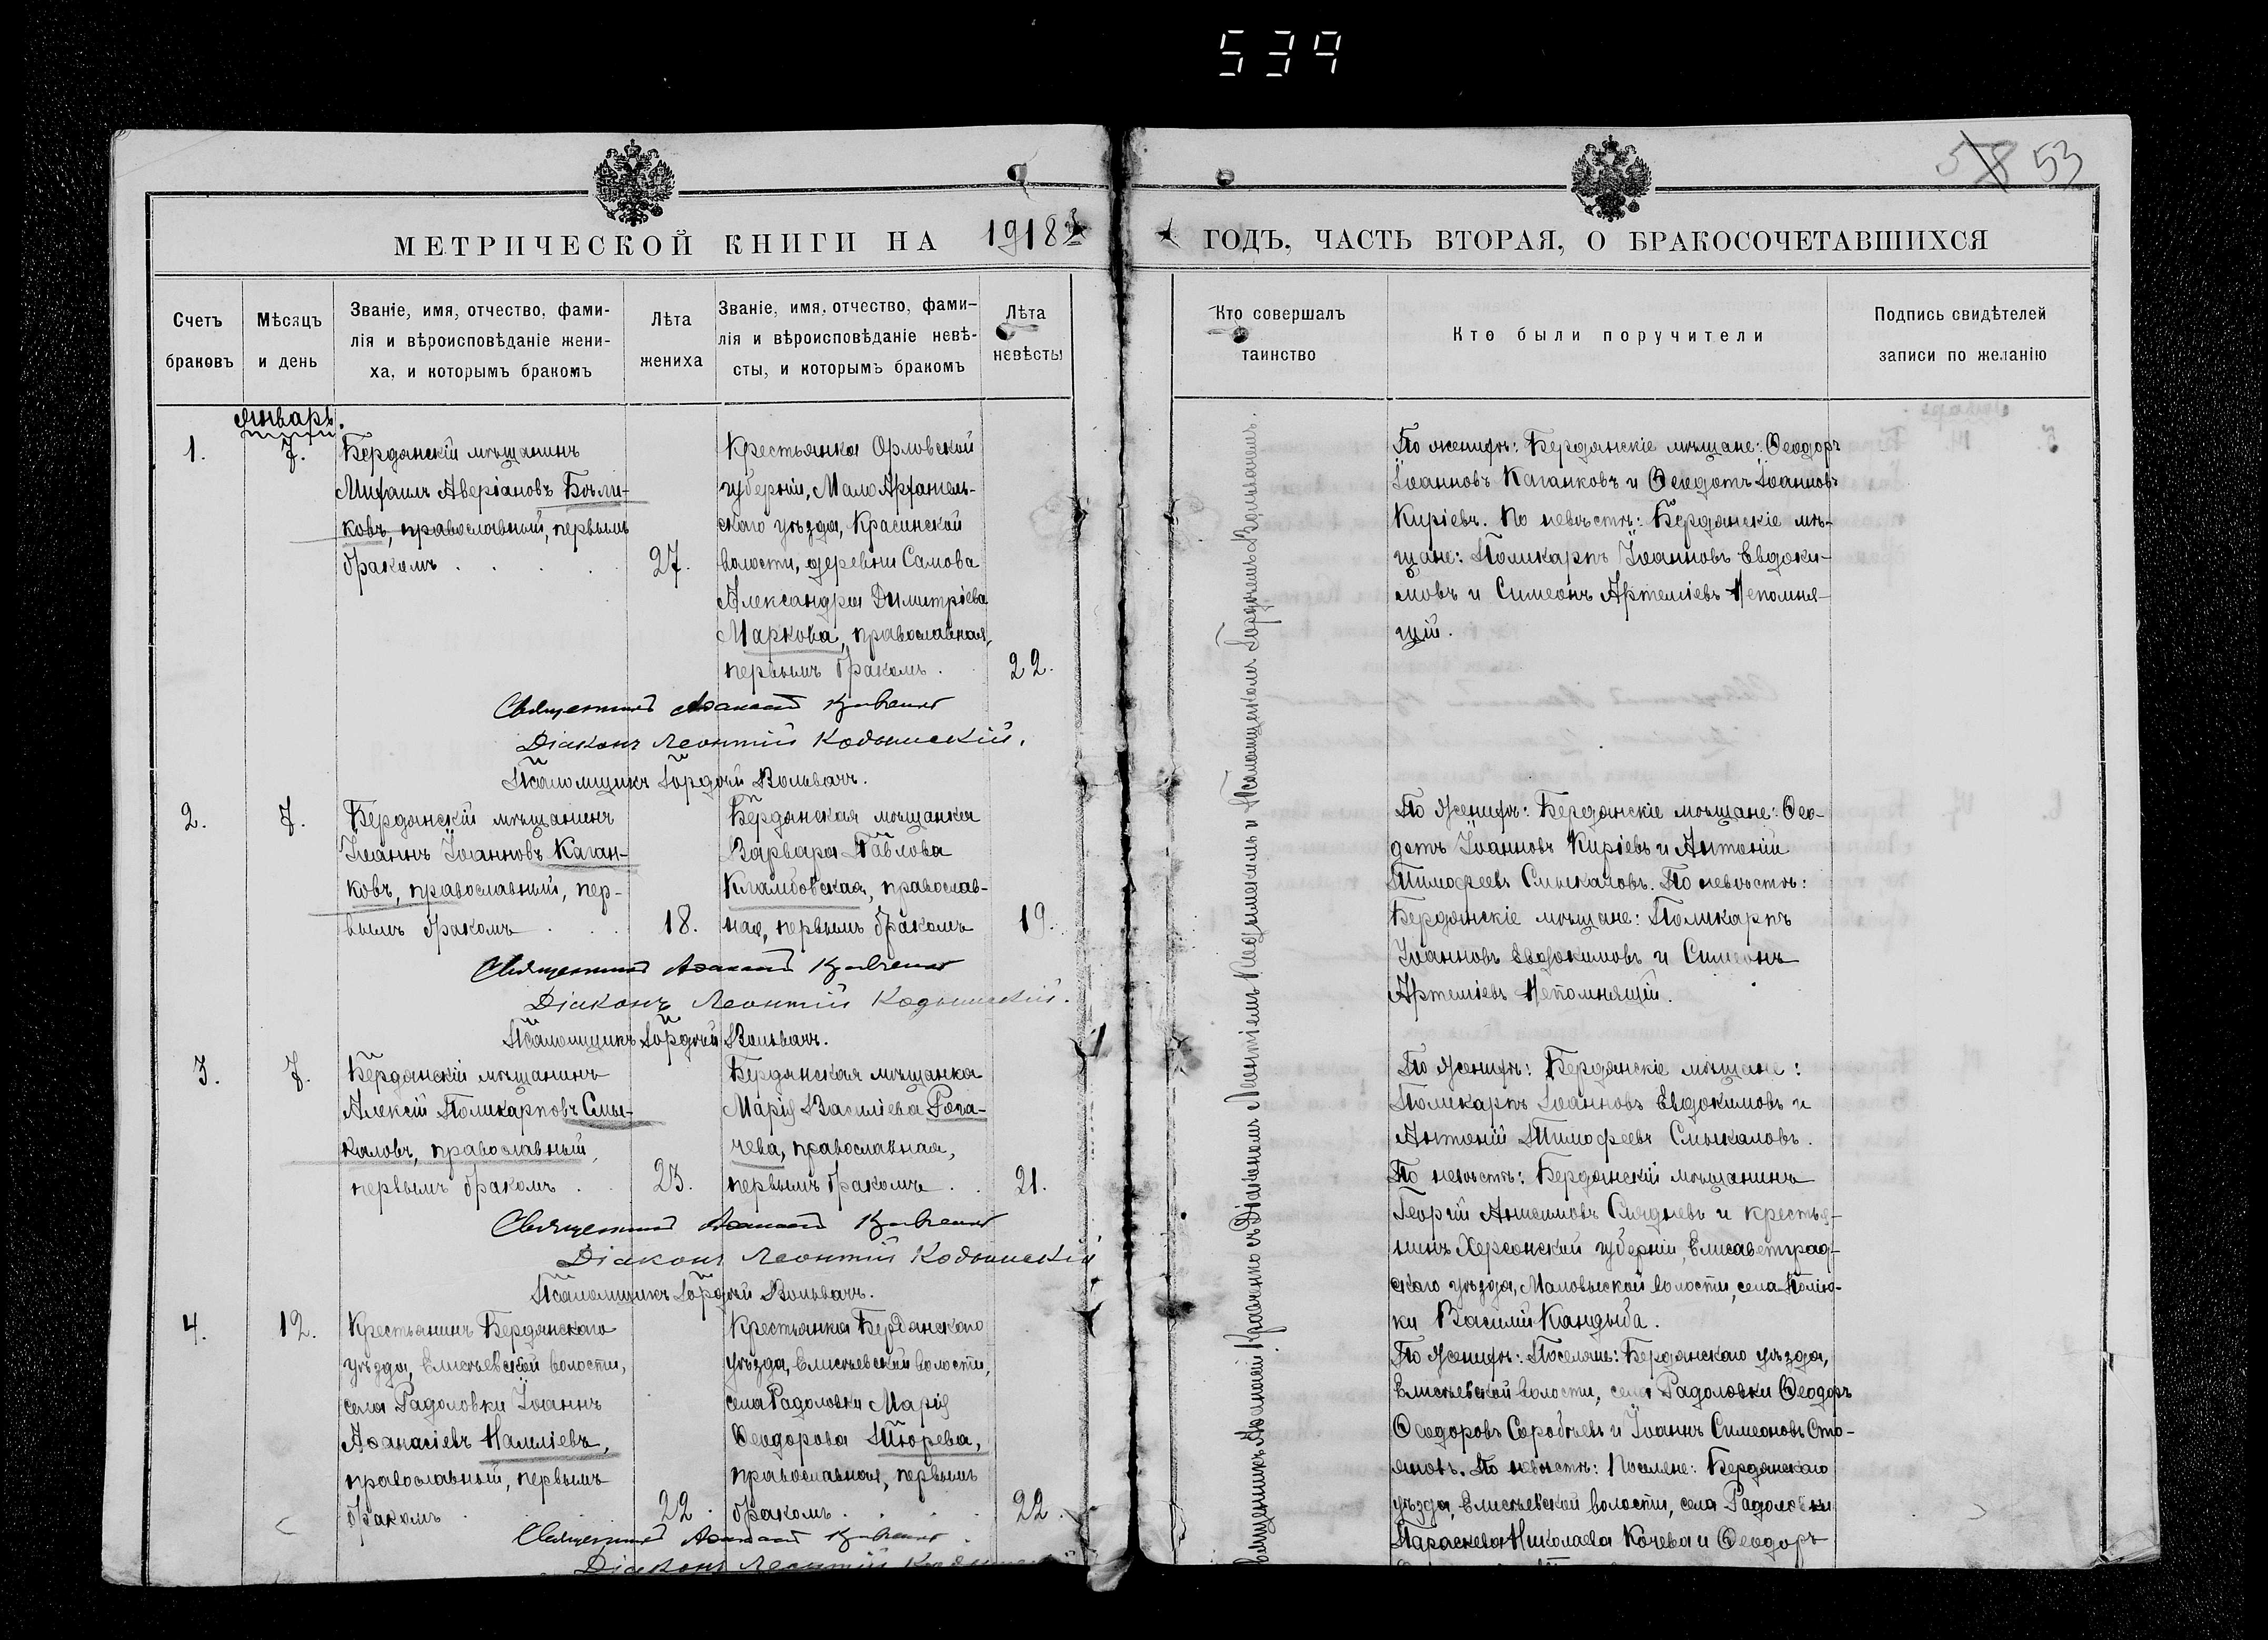 539
58 53
МЕТРИЧЕСКОЙ КНИГИ НА 1918
ГОДЪ, ЧАСТЬ ВТОРАЯ, О БРАКОСОЧЕТАВШИХСЯ
Счетъ
браковъ
Мѣсяцъ
и день
Званіе, имя, отчество, фами-
лія и вѣроисповѣданіе жени-
ха, и которымъ бракомъ
Лѣта
жениха
Званіе, имя, отчество, фами-
лія и вѣроисповѣданіе невѣ-
сты, и которымъ бракомъ
Лѣта
невѣсты
Кто совершалъ
таинство
Кто были поручители
Подпись свидѣтелей
записи по желанію
Январь.
1.
7.
Бердянскій мѣщанинъ
Михаилъ Аверіановъ Бѣли-
ковъ, православный, первымъ
бракомъ
27.
Крестьянка Орловской
губерніи, Мало Архангель-
скаго уѣзда, Красинской
волости, деревни Самова
Александра Димитріева
Маркова, православная,
первымъ бракомъ.
22.
По женихѣ: Бердянскіе мѣщане: Ѳеодоръ
Іоанновъ Каганковъ и Ѳеодотъ Іоанновъ
Киріевъ. По невѣстѣ: Бердянскіе мѣ-
щане: Поликарпъ Іоанновъ Евдоки-
мовъ и Симеонъ Артеміевъ Непомня-
щій.
Священникъ Аѳанасій Кравченко
Діаконъ Леонтій Кодымскій.
Псаломщикъ Гордѣй Вольвачъ.
2.
7.
Бердянскій мѣщанинъ
Іоаннъ Іоанновъ Каган-
ковъ, православный, пер-
вымъ бракомъ
18.
Бердянская мѣщанка
Варвара Павлова
Кламбовская, православ-
ная, первымъ бракомъ
19.
По женихѣ: Бердянскіе мѣщане: Ѳео-
дотъ Іоанновъ Киріевъ и Антоній
Тимофеевъ Смыкаловъ. По невѣстѣ:
Бердянскіе мѣщане: Поликарпъ
Іоанновъ Евдокимовъ и Симеонъ
Артеміевъ Непомнящій.
Священникъ Аѳанасій Кравченко
Діаконъ Леонтій Кодымскій.
Псаломщикъ Гордѣй Вольвачъ.
3.
7.
Бердянскій мѣщанинъ
Алексій Поликарповъ Смы-
каловъ, православный,
первымъ бракомъ
23.
Бердянская мѣщанка
Марія Василіева Рога-
чева, православная,
первымъ бракомъ
21.
По женихѣ: Бердянскіе мѣщане:
Поликарпъ Іоанновъ Евдокимовъ и
Антоній Тимофеевъ Смыкаловъ.
По невѣстѣ: Бердянскій мѣщанинъ
Георгій Анисимовъ и крестья-
нинъ Херсонской губерніи, Елисаветград-
скаго уѣзда, Маловыской волости, села
ки Василій Кандыба.
Священникъ Аѳанасій Кравченко
Діаконъ Леонтій Кодымскій
Псаломщикъ Гордѣй Вольвачъ.
4.
12.
Крестьянинъ Бердянскаго
уѣзда, Елисѣевской волости,
села Радоловки Іоаннъ
Аѳанасіевъ Малиліевъ,
православный, первымъ
бракомъ
22.
Крестьянка Бердянскаго
уѣзда, Елисѣевской волости,
села Радоловки Марія
Ѳеодорова Тюрева,
православная, первымъ
бракомъ.
22.
По женихѣ: Поселяне: Бердянскаго уѣзда,
Елисѣевской волости, села Радоловки Ѳеодоръ
Ѳеодоровъ Саробѣевъ и Іоаннъ Симеоновъ Сто-
яновъ. По невѣстѣ: Поселяне: Бердянскаго
уѣзда, Елисѣевской волости, села Радоловки
Параскева Николаева Кочева и Ѳеодоръ
Священникъ Аѳанасій Кравченко
Діаконъ Леонтій Кодымскій
Священникъ Аѳанасій Кравченко съ Діакономъ Леонтіемъ Кадымскимъ и Псаломщикомъ Гордѣемъ Вольвачемъ.